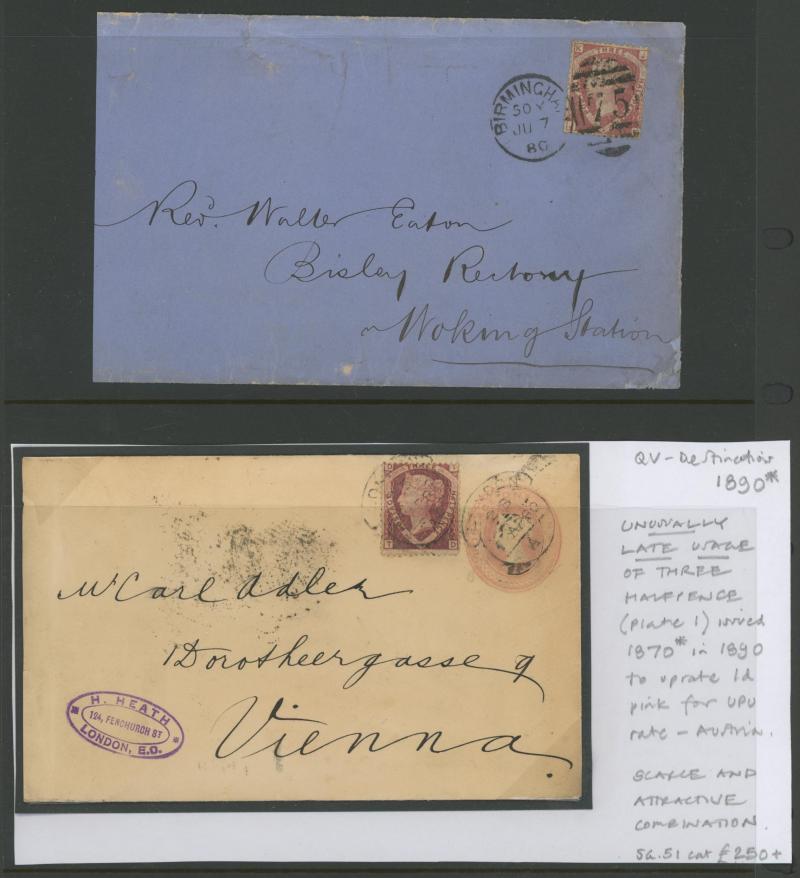 BIRMINGHA
50 Y
JU 7
80
175
THREE
Revd. Walter Eaton
Bisley Rectory
Woking Station
THREE
T D
Mr Carl Adler
Dorotheergasse 9
Vienna.
H. HEATH
124, FENCHURCH ST
LONDON, E.C.
QV - Destination
1890*
UNUSUALLY
LATE USAGE
OF THREE
HALFPENCE
(plate 1) issued
1870* in 1890
to uprate 1d
pink for UPU
rate - Austria.
SCARCE AND
ATTRACTIVE
COMBINATION.
SG.51 cat £250+